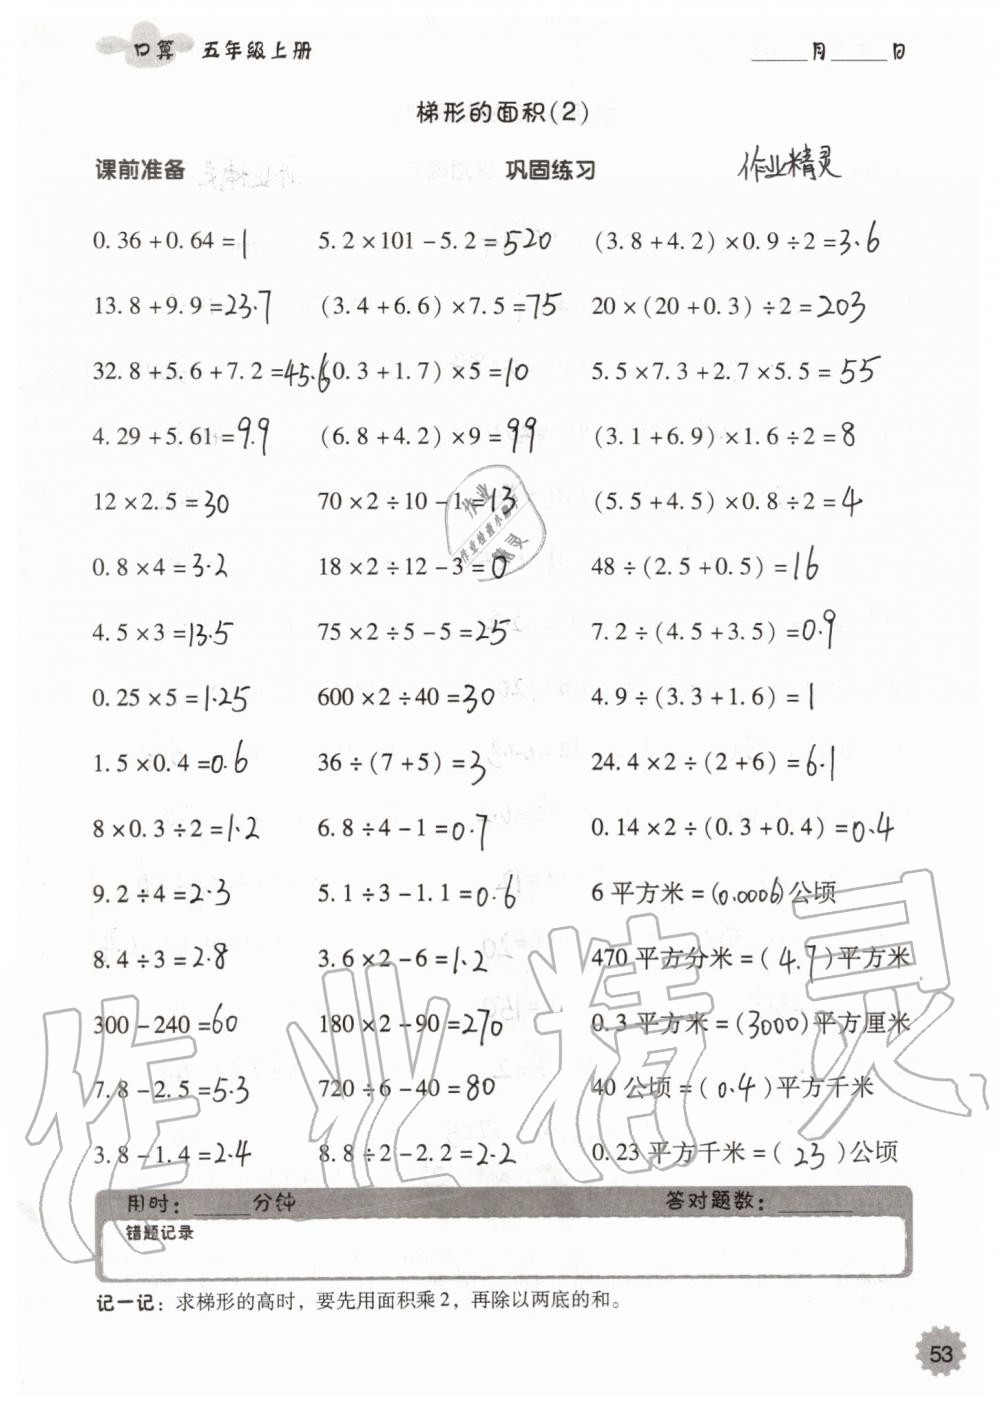 口算 五年级上册 ____月____日
梯形的面积(2)
课前准备 巩固练习 作业精灵
0.36+0.64=1 5.2×101-5.2=520 (3.8+4.2)×0.9÷2=3.6
13.8+9.9=23.7 (3.4+6.6)×7.5=75 20×(20+0.3)÷2=203
32.8+5.6+7.2=45.6 (0.3+1.7)×5=10 5.5×7.3+2.7×5.5=55
4.29+5.61=9.9 (6.8+4.2)×9=99 (3.1+6.9)×1.6÷2=8
12×2.5=30 70×2÷10-1=13 (5.5+4.5)×0.8÷2=4
0.8×4=3.2 18×2÷12-3=0 48÷(2.5+0.5)=16
4.5×3=13.5 75×2÷5-5=25 7.2÷(4.5+3.5)=0.9
0.25×5=1.25 600×2÷40=30 4.9÷(3.3+1.6)=1
1.5×0.4=0.6 36÷(7+5)=3 24.4×2÷(2+6)=6.1
8×0.3÷2=1.2 6.8÷4-1=0.7 0.14×2÷(0.3+0.4)=0.4
9.2÷4=2.3 5.1÷3-1.1=0.6 6平方米=(0.0006)公顷
8.4÷3=2.8 3.6×2-6=1.2 470平方分米=(4.7)平方米
300-240=60 180×2-90=270 0.3平方米=(3000)平方厘米
7.8-2.5=5.3 720÷6-40=80 40公顷=(0.4)平方千米
3.8-1.4=2.4 8.8÷2-2.2=2.2 0.23平方千米=(23)公顷
用时：____分钟 答对题数：____
错题记录
记一记：求梯形的高时，要先用面积乘2，再除以两底的和。
53
作业精灵